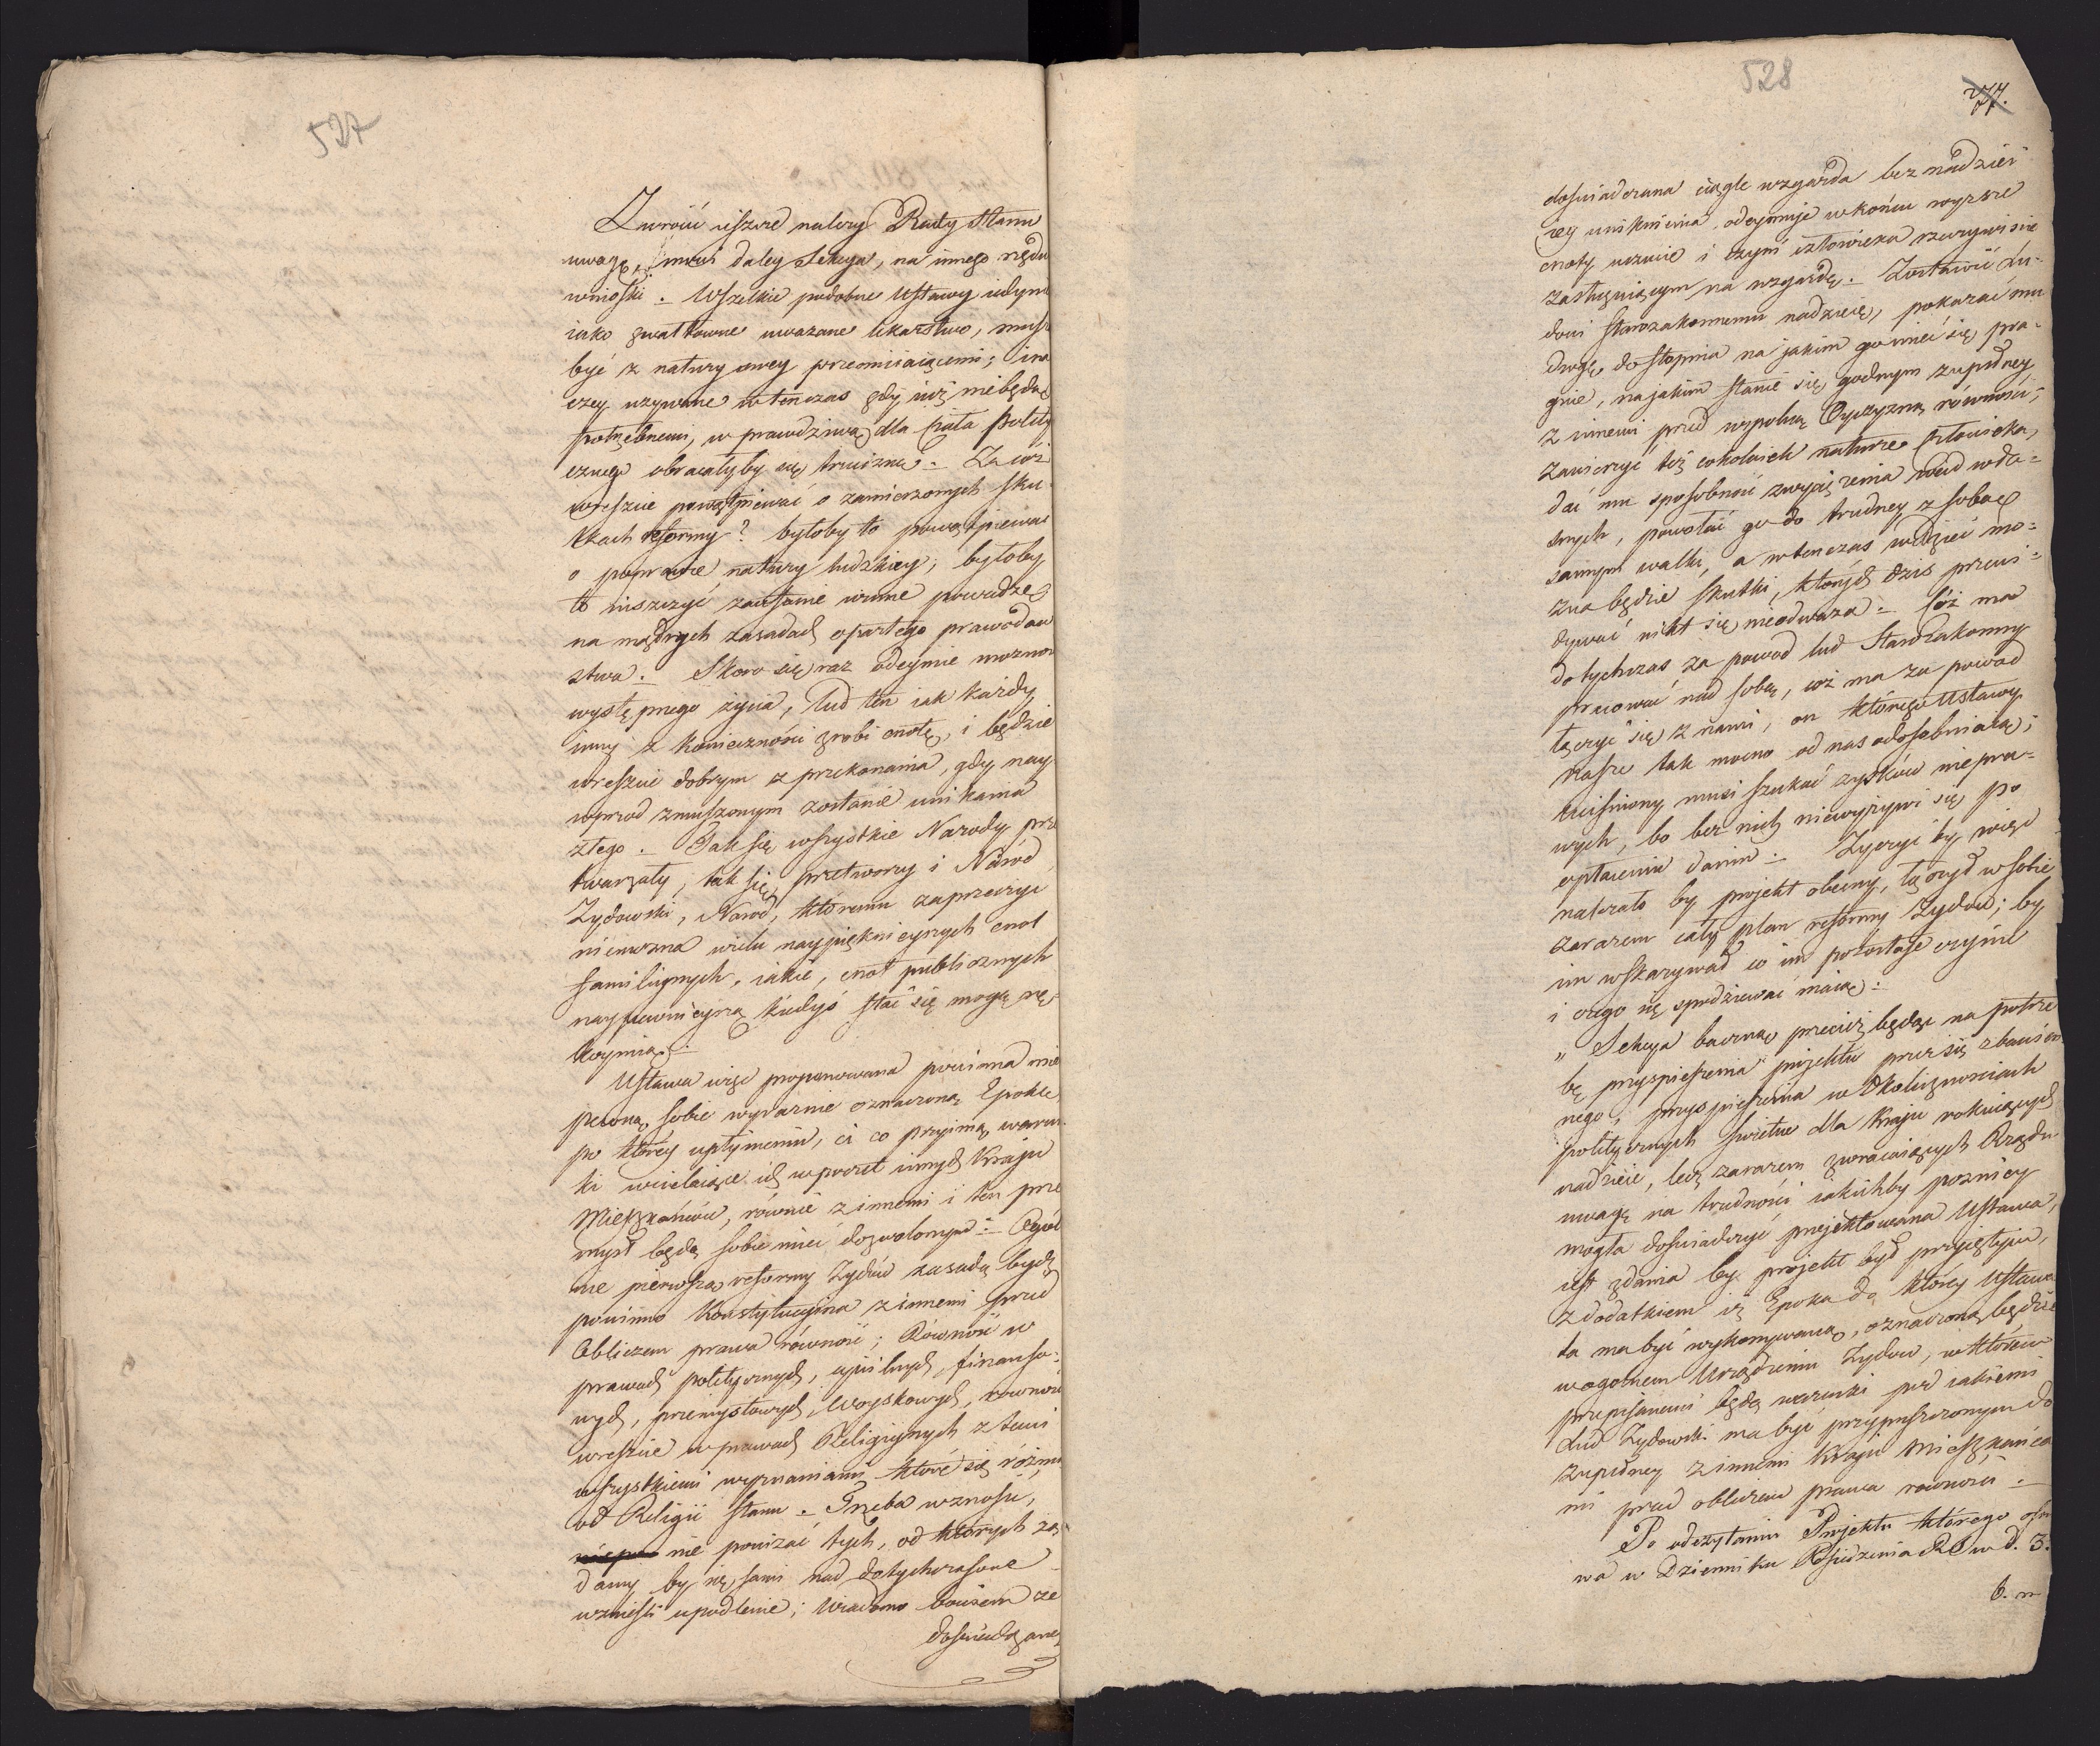 527
Zwrócić ieszcze należy Rady Stanu
uwagę, mówi daley Sekcya, na innego rzędu
wnioski. Wszelkie podobne Ustawy iedynie
iako gwałtowne uważane lekarstwo, musz
być z natury swey przemiiaiącemi; ina
czey używane wtenczas gdy iuż niebędą
potrzebnemi, w prawdziwą dla Ciała Polity
cznego obracałyby się truciznę. Za cóż
wreszcie powątpiewać o zamierzonych sku
tkach reformy? byłoby to powątpiewać
o poprawie natury ludzkiey; byłoby
to niszczyć zaufanie winne powadze
na mądrych zasadach opartego prawodaw
stwa. Skoro się raz odeymie możność
występnego życia, lud ten iak każdy
inny z konieczności zrobi cnotę, i będzie
wreszcie dobrym z przekonania, gdy nay
wprzod zmuszonym zostanie unikania
złego. Jak się wszystkie Narody prze
twarzały, tak się przetworzy i Naród
Żydowski, Naród, któremu zaprzeczyć
niemożna wielu naypięknieyszych cnot
familiynych, iakie, cnot publicznych
naypewnieyszą kiedyś stać się mogą rę-
koymią.
Ustawa więc proponowana powinna mieć
pewną sobie wyraźnie oznaczoną Epokę
po którey upłynieniu, ci co przyimą warun
ki wcielaiące ich w poczet innych Kraju
Mieszkańców, równie z innemi i ten prze
mysł będą sobie mieć dozwolonym. Ogól
nie pierwszą reformy Żydów zasadą bydź
powinno Konstytucyina z innemi przed
Obliczem prawa równość; Równość w
prawach politycznych, cywilnych, finanso-
wych, przemysłowych, Woyskowych, równość
wreszcie w prawach Religiynych z temi
wszystkiemi wyznaniami które się różnią
od Religii Stanu. Trzeba wznosić,
nie poniżać tych, od których żą
damy by się sami nad dotychczasowe
wznieśli upodlenie; Wiadomo bowiem że
doświadczana
528
77.
doświadczana ciągle wzgarda bez nadziei
iey uniknienia, odeymuje w końcu wyższe
cnoty uczucie i czyni człowieka rzeczywiście
zasługuiącym na wzgardę. Zostawić Lu-
dowi Starozakonnemu nadzieię, pokazać mu
drogę do stopnia na jakim go mieć się pra-
gnie, na jakim stanie się godnym zupełney
z innemi przed wspolną Oyczyzną równości;
zawierzyć też cokolwiek naturze człowieka,
dać mu sposobność zwyciężenia wad wła-
snych, powołać go do trudney z sobą
samym walki, a wtenczas widzieć mo-
żna będzie skutki, których dzis przewi-
dywać nikt się nieodważa. Cóż ma
dotychczas za powod lud Starozakonny
pracować nad sobą, coż ma za powod
łączyć się z nami, on którego Ustawy
nasze tak mocno od nas odosebniaią;
Uciśniony musi szukać zysków niepra-
wych, bo bez nich niewyżywi się po
opłaceniu danin. Życzyć by więc
należało by projekt obecny, łączył w sobie
zarazem cały plan reformy Żydów; by
im wskazywał co im pozostaje czynić
i czego się spodziewać maią.
„ Sekcya baczną przecież będąc na potrze
bę przyspieszenia projektu przez się zbawien
nego, przyspieszenia w okolicznościach
politycznych świetne dla Kraju rokuiących
nadzieie, lecz zarazem zwracaiących Rządu
uwagę na trudności iakichby pozniey
mogła doświadczyć projektowana Ustawa,
iest zdania by projekt był przyiętym,
z dodatkiem iż Epoka do którey Ustawa
ta ma być wykonywaną, oznaczoną będzie
w ogolnem Urządzeniu Żydów, w którem
przepisanemi będą warunki pod iakiemi
Lud Żydowski ma być przypuszczonym do
zupełney z innemi Kraju Mieszkańca
mi przed obliczem prawa równości.
Po odczytaniu Projektu którego osno
wa w Dzienniku Posiedzenia RS w d. 3.
b. m